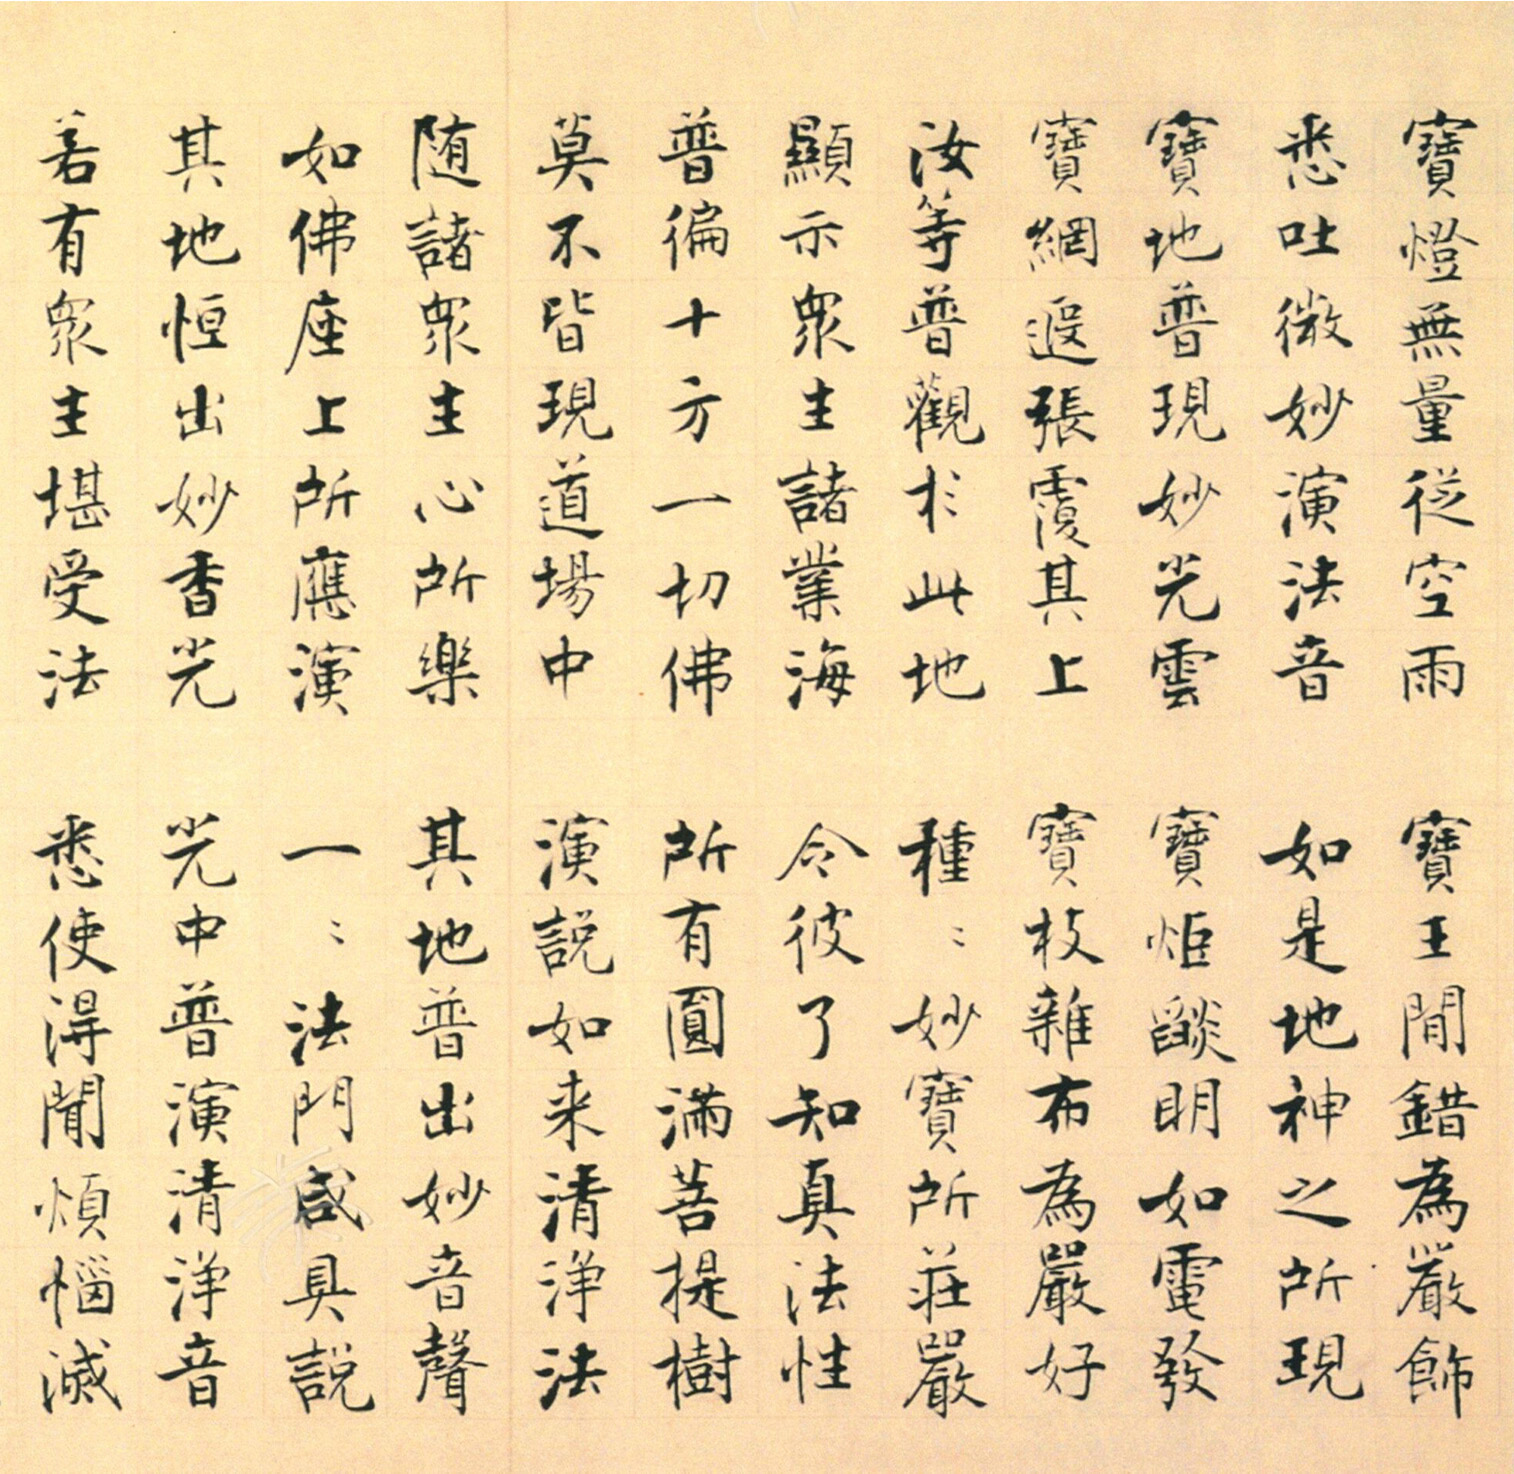 寶燈無量從空雨 寶王間錯為嚴飾
悉吐微妙演法音 如是地神之所現
寶地普現妙光雲 寶炬䦨明如電發
寶網遐張覆其上 寶枝雜布為嚴好
汝等普觀於此地 種〻妙寶所莊嚴
顯示眾生諸業海 令彼了知真法性
普徧十方一切佛 所有圓滿菩提樹
莫不皆現道場中 演説如来清淨法
随諸眾生心所樂 其地普出妙音聲
如佛座上所應演 一〻法門咸具説
其地恒出妙香光 光中普演清淨音
若有眾生堪受法 悉使得聞煩惱滅